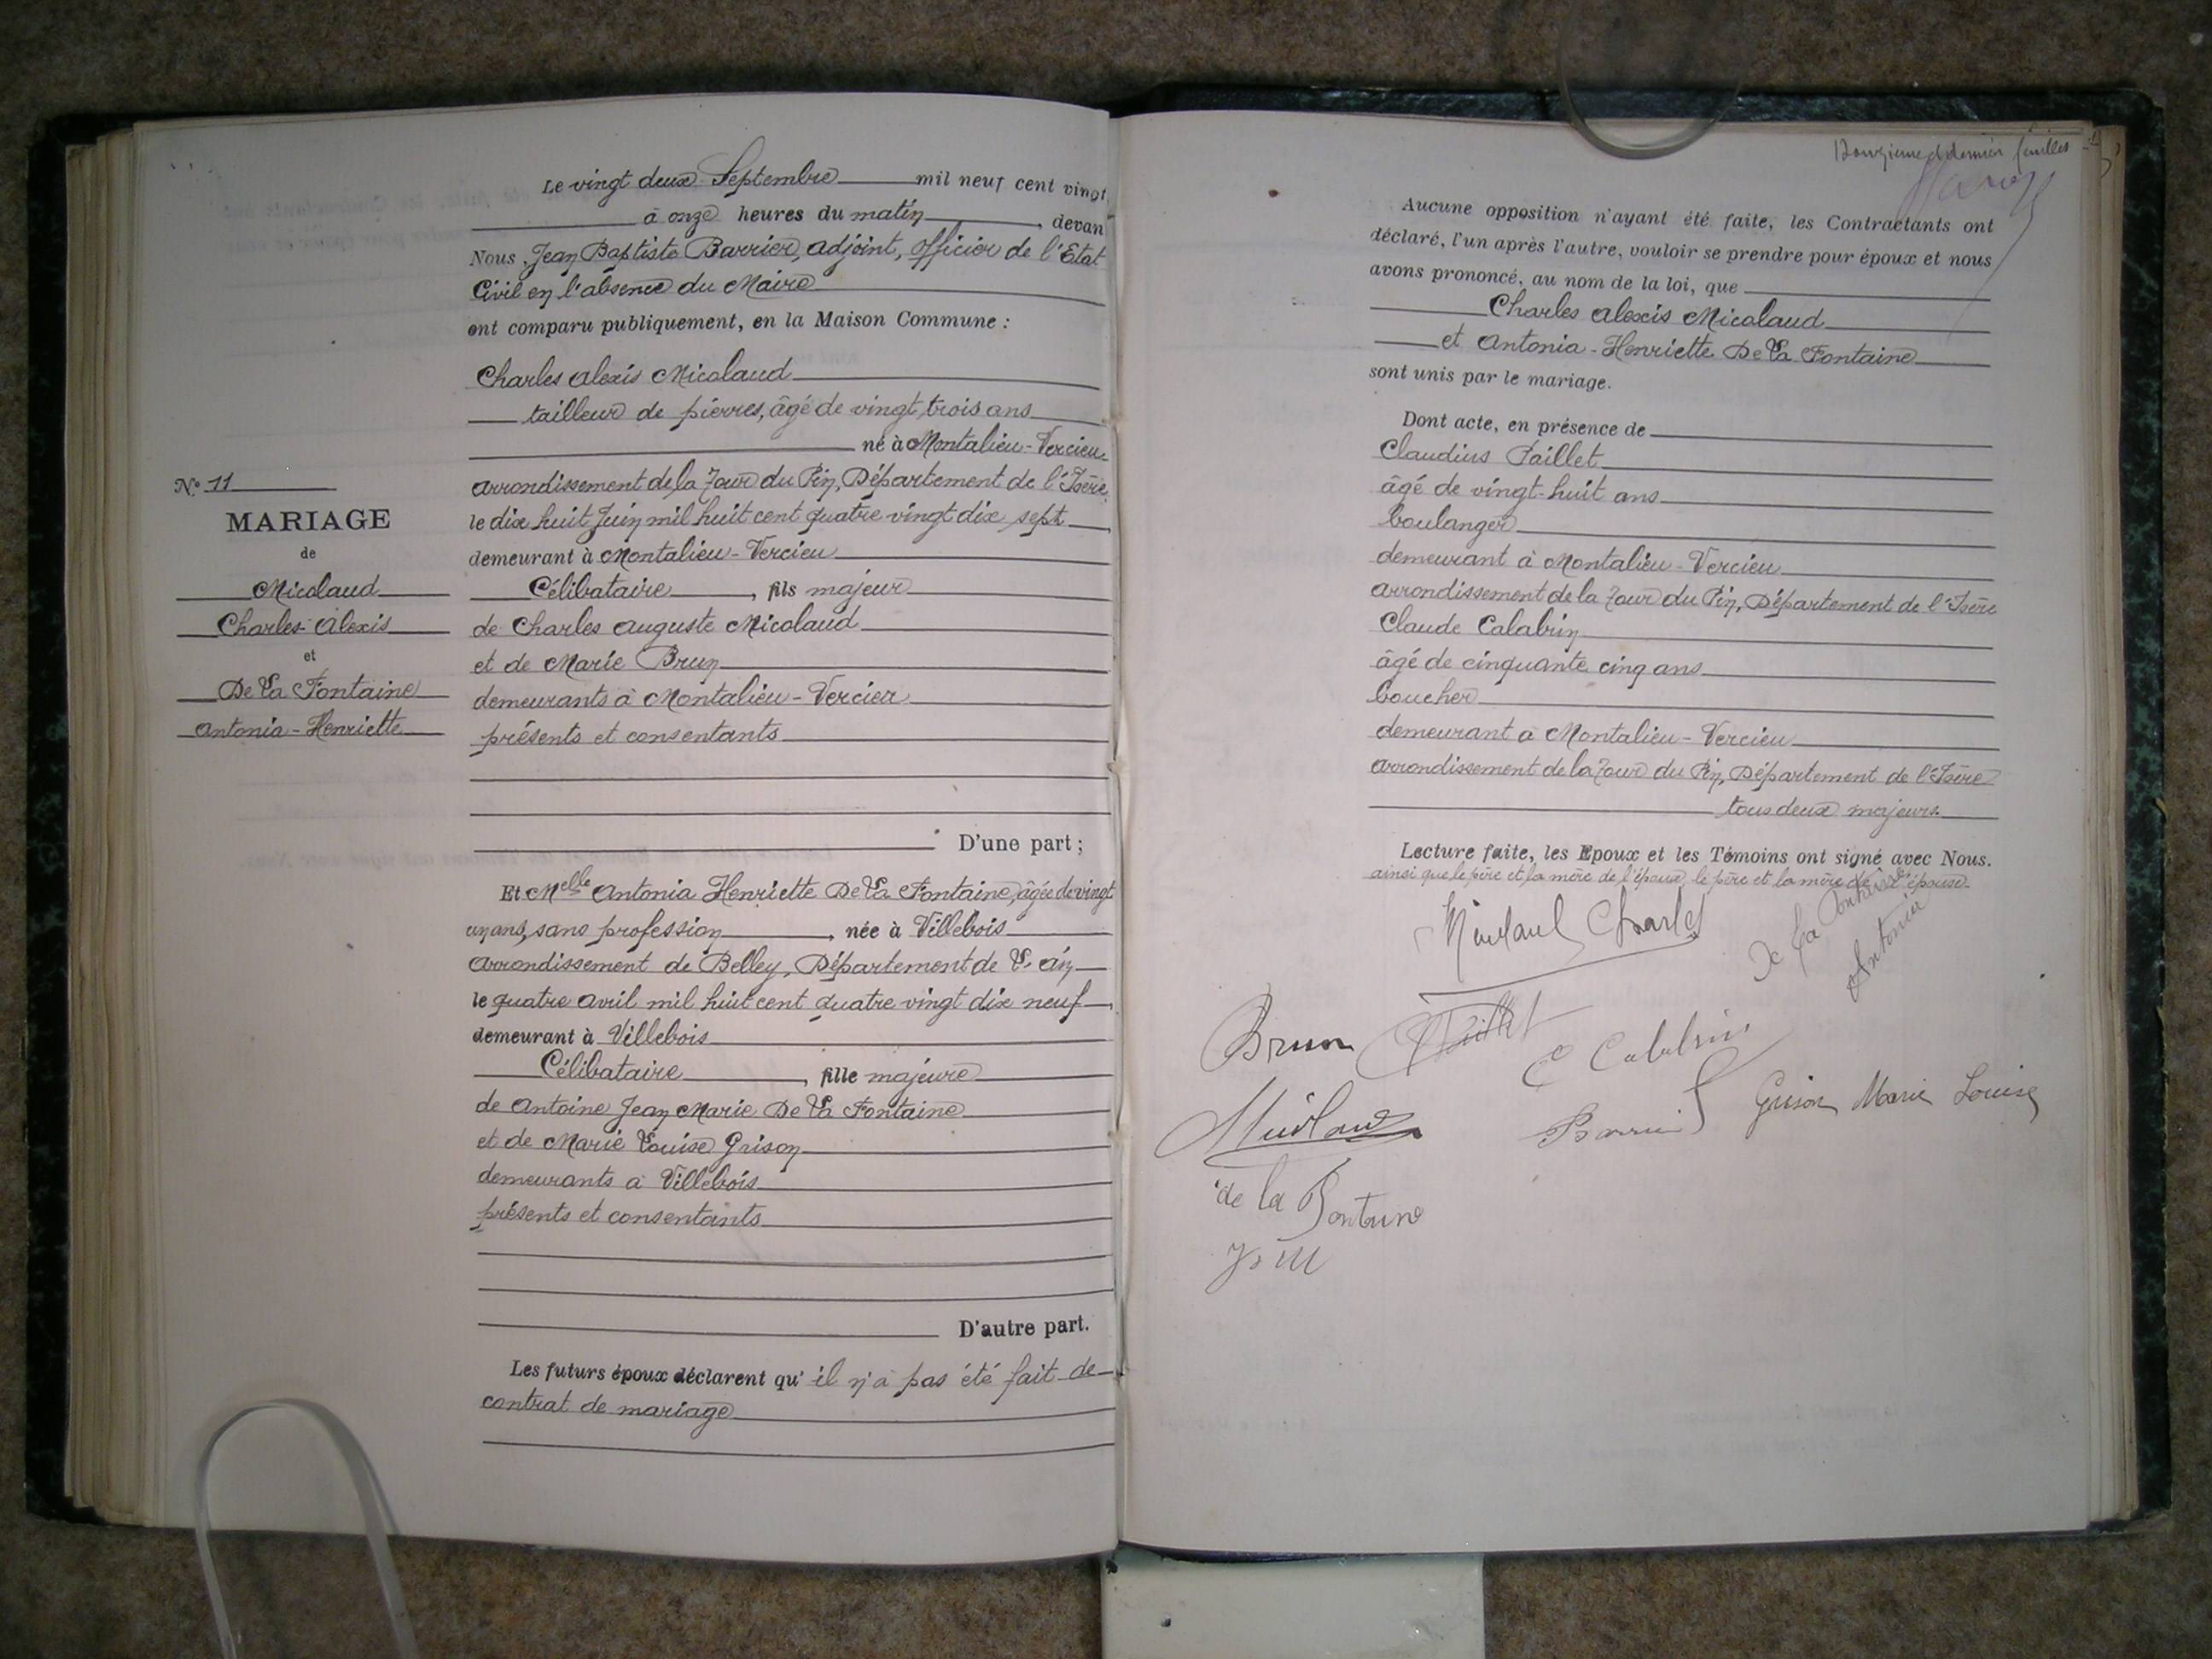 Le vingt deux Septembre mil neuf cent vingt
à onze heures du matin, devan
Nous, Jean Baptiste Barrier, adjoint, officier de l'Etat
Civil en l'absence du Maire
ont comparu publiquement, en la Maison Commune :
Charles Alexis Micolaud
tailleur de pierres, âgé de vingt trois ans
né à Montalieu-Vercieu
arrondissement de la Tour du Pin, Département de l'Isère
le dix huit Juin mil huit cent quatre vingt dix sept
demeurant à Montalieu-Vercieu
Célibataire, fils majeur
de Charles Auguste Micolaud
et de Marie Brun
demeurants à Montalieu-Vercieu
présents et consentants
D'une part ;
Et Melle Antonia Henriette De La Fontaine, âgée de vingt
un ans, sans profession, née à Villebois
arrondissement de Belley, Département de L'ain
le quatre avril mil huit cent quatre vingt dix neuf
demeurant à Villebois
Célibataire, fille majeure
de Antoine Jean Marie De La Fontaine
et de Marie Louise Grison
demeurants à Villebois
présents et consentants
D'autre part.
Les futurs époux déclarent qu'il n'a pas été fait de
contrat de mariage
N° 11
MARIAGE
de
Micolaud
Charles-Alexis
et
De La Fontaine
Antonia-Henriette
Douzième et dernier feuillet
Aucune opposition n'ayant été faite, les Contractants ont
déclaré, l'un après l'autre, vouloir se prendre pour époux et nous
avons prononcé, au nom de la loi, que
Charles Alexis Micolaud
et Antonia-Henriette De La Fontaine
sont unis par le mariage.
Dont acte, en présence de
Claudius Paillet
âgé de vingt-huit ans
boulanger
demeurant à Montalieu-Vercieu
arrondissement de la Tour du Pin, Département de l'Isère
Claude Calabrin
âgé de cinquante cinq ans
boucher
demeurant à Montalieu-Vercieu
arrondissement de la Tour du Pin, Département de l'Isère
tous deux majeurs.
Lecture faite, les Epoux et les Témoins ont signé avec Nous.
ainsi que le père et la mère de l'époux, le père et la mère de l'épouse.
Micolaud Charles
De La Fontaine
Antonia
Brun
C Calabrin
Micolaud
Barrier
Grison Marie Louise
de la Fontaine